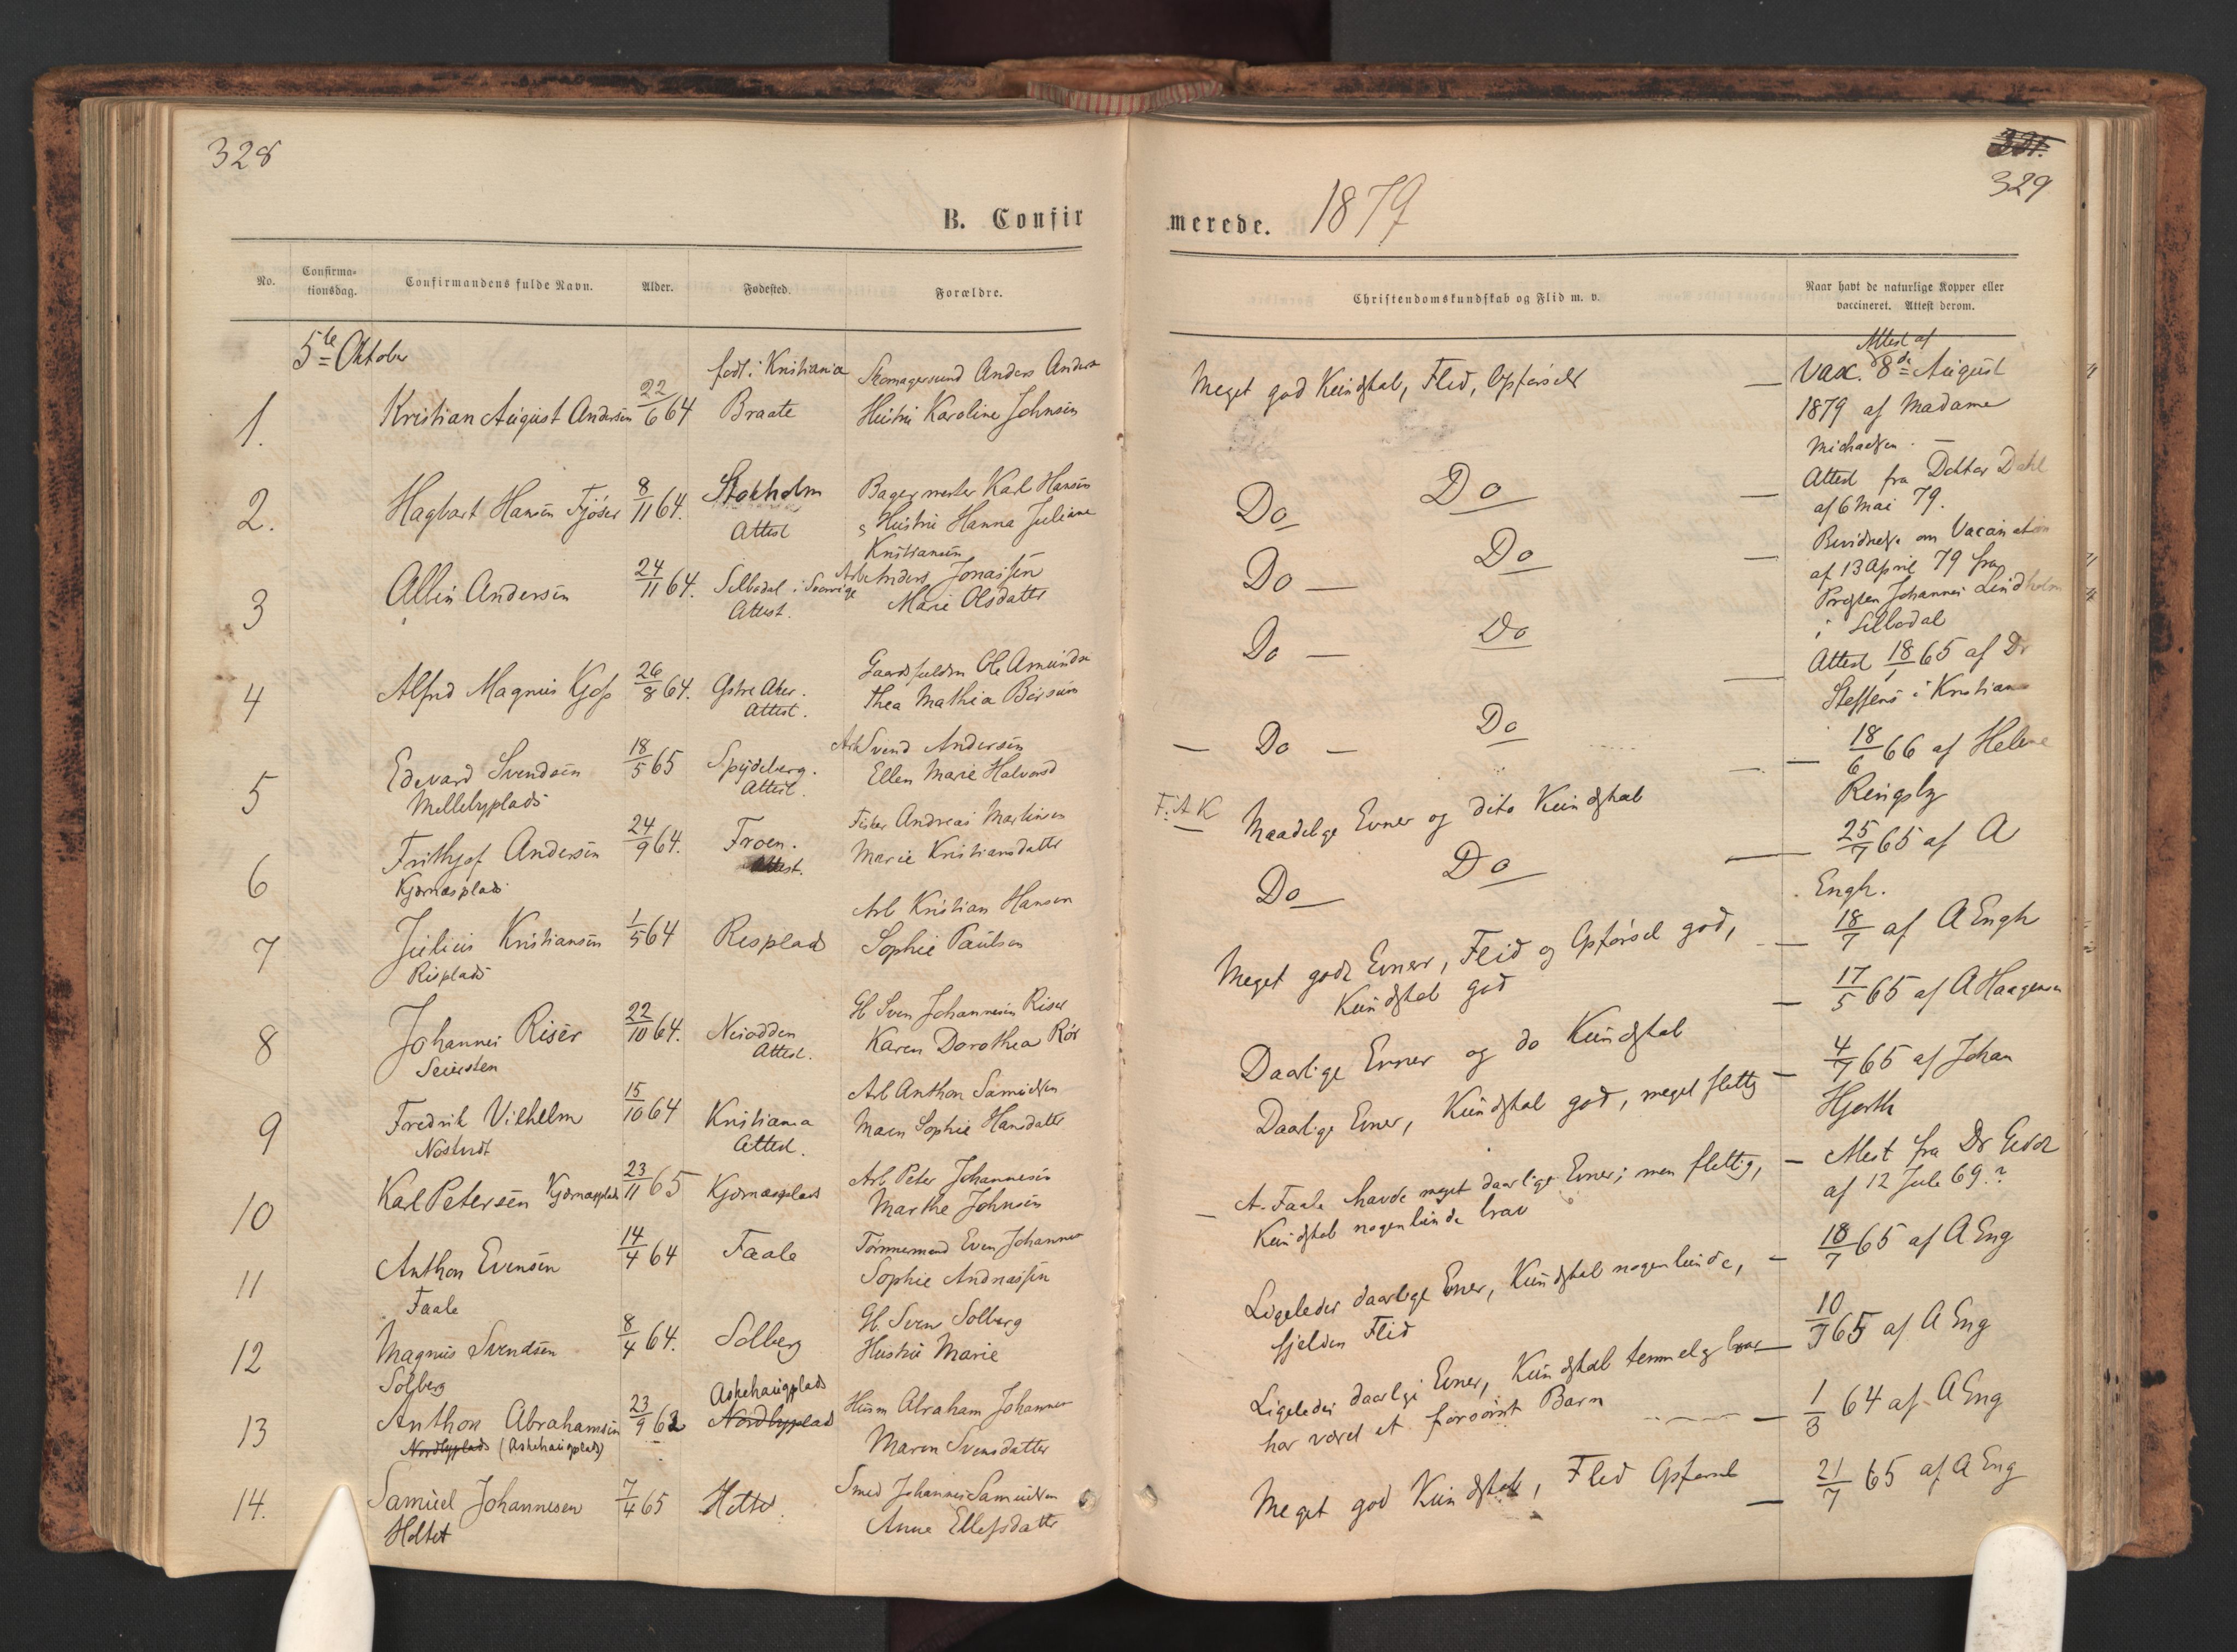 328
B. Confir
No.
Confirma-
tionsdag.
Confirmandens fulde Navn.
Alder.
Fødested.
Forældre.
5te Oktober
født i Kristiania Skomagersvend Anders Anders
1. Kristian August Andersen 22/6 64 Braate Hustru Karoline Johnsen
2. Hagbart Hansen Tjöser 8/11 64. Stokholm Bagermester Karl Hansen
Attest Hustru Hanna Juliane
Kristiansen
3 Albin Andersen 24/11 64. Silbodal i Sverrige Arb Anders Jonassen
Attest. Marie Olsdatter
4 Alfred Magnus 26/8 64. Østre Aker. Ole Amunds
Attest. Thea Mathia
5 Edevard Svendsen 18/5 65 Spydeberg. Arb Svend Andersen
Mellebyplads Attest. Ellen Marie Halvorsd
6 Frithjof Andersen 24/9 64. Froen. Fisker Andreas Martinsen
Kjærnæsplads Attest. Marie Kristiansdatter
7 Julius Kristiansen 1/5 64 Risplads Arb Kristian Hansen
Risplads Sophie Paulsen
8 Johannes Riser 22/10 64. Nesodden Gb Sven Johannesen Riser
Seiersten Attest. Karen Dorothea Rör
9 Fredrik Vilhelm 15/10 64 Kristiania Arb Anthon Samuelsen
Attest. Maren Sophie Hansdatter
10 Karl Petersen Kjærnæsplads 23/11 65 Kjærnæsplads Arb Peter Johannesen
Marthe Johnsen
11 Anthon Evensen 14/4 64 Faale Tömmermand Even Johannes
Faale Sophie Andreassen
12 Magnus Svendsen 8/4 64. Solberg Gb. Sven Solberg
Solberg Hustru Marie
Askehaugplads
13 Anthon Abrahamsen 23/9 62 Nordbyplads Husm Abraham Johannes
Nordbyplads (Askehaugplads) Maren Svensdatter
14. Samuel Johannesen 7/4 65 Holtet. Smed Johannes Samuelsen
Holtet Anne Ellefsdatter
329
merede. 1879
Christendomskundskab og Flid m. v.
Naar havt de naturlige Kopper eller
vaccineret. Attest derom.
Attest af
Meget god Kundskab, Flid, Opförsel — Vax. 8de August
1879 af Madame
Michaelsen. —
Do Do — Attest fra Doktor Dahl
af 6 Mai 79.
Do — Do — Bevidnelse om Vaccination
af 13 April 79 fra
Prosten Johannes Lindholm
i Silbodal
Do — Do — Attest 18/1 65 af Dr
Steffens i Kristiania
— Do — Do — 18/6 66 af Helene
Ringsby
F.A.K Maadelige Evner og dito Kundskab — 25/7 65 af A
Engh.
Do Do — 18/7 af A Engh
Meget gode Evner, Flid og Opförsel god, — 17/5 65 af A Haagensen
Kundskab god
Daarlige Evner og do Kundskab — 4/7 65 af Johan
Hjorth
Daarlige Evner, Kundskab god, meget flittig — Attest fra Dr
af 12 Juli 69.?
— A. Faale havde meget daarlige Evner; men flittig, — 18/7 65 af A Eng
Kundskab nogenlunde brav
Ligeledes daarlige Evner, Kundskab nogenlunde, — 10/7 65 af A Eng
sjelden Flid
Ligeledes daarlige Evner, Kundskab temmelig brav — 1/8 64 af A Eng
har været et forsömt Barn
Meget god Kundskab, Flid Opförsel — 21/7 65 af A Eng